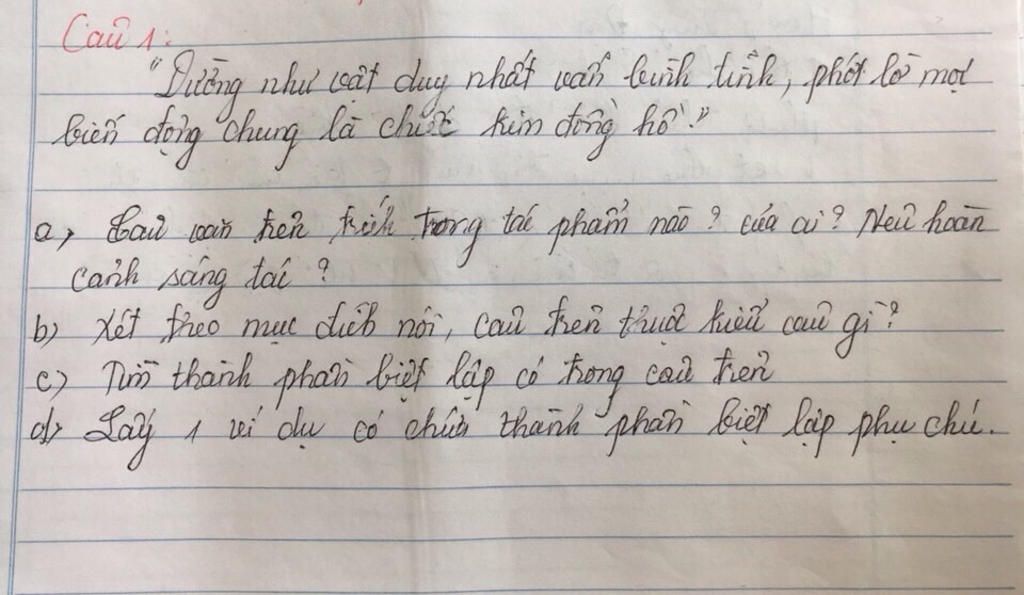 Câu 1:
"Dường như vật duy nhất vẫn bình tĩnh, phớt lờ mọi
biến động chung là chiếc kim đồng hồ."
a, Câu văn trên trích trong tác phẩm nào? của ai? Nêu hoàn
cảnh sáng tác?
b) Xét theo mục đích nói, câu trên thuộc kiểu câu gì?
c) Tìm thành phần biệt lập có trong câu trên
d) Lấy 1 ví dụ có chứa thành phần biệt lập phụ chú.